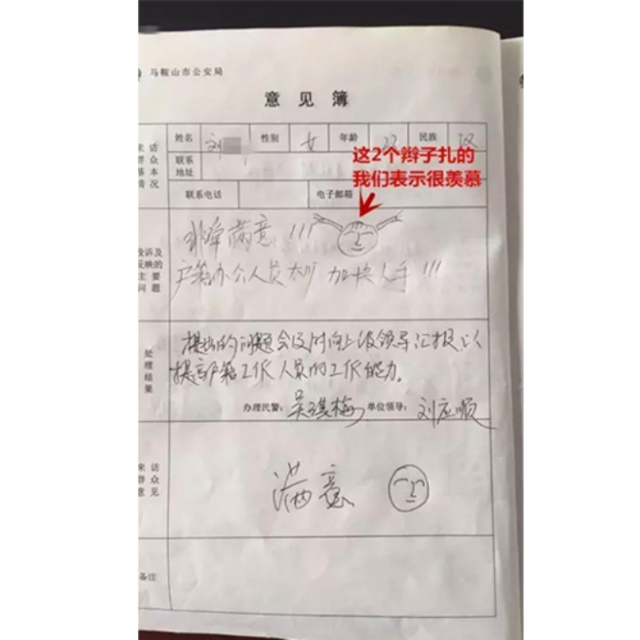 马鞍山市公安局
意见簿
来访群众基本情况
姓名 刘 性别 女 年龄 22 民族 汉
联系地址
联系电话 电子邮箱
这2个辫子扎的
我们表示很羡慕
投诉及反映的主要问题
非常满意!!!
户籍办公人员太少 加快人手!!!
处理结果
提出的问题会及时向上级领导汇报,以
提高户籍工作人员的工作能力。
办理民警: 吴琪梅 单位领导: 刘应顺
来访群众意见
满意
备注